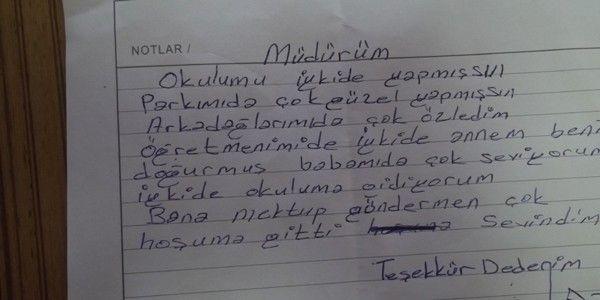 NOTLAR /
Müdürüm
Okulumu iyikide yapmışsın
Parkımıda çok güzel yapmışsın
Arkadaşlarımıda çok özledim
Öğretmenimide iyikide annem beni
doğurmuş babamıda çok seviyorum
iyikide okuluma gidiyorum
Bana mektup göndermen çok
hoşuma gitti sevindim
Teşekkür Dederim